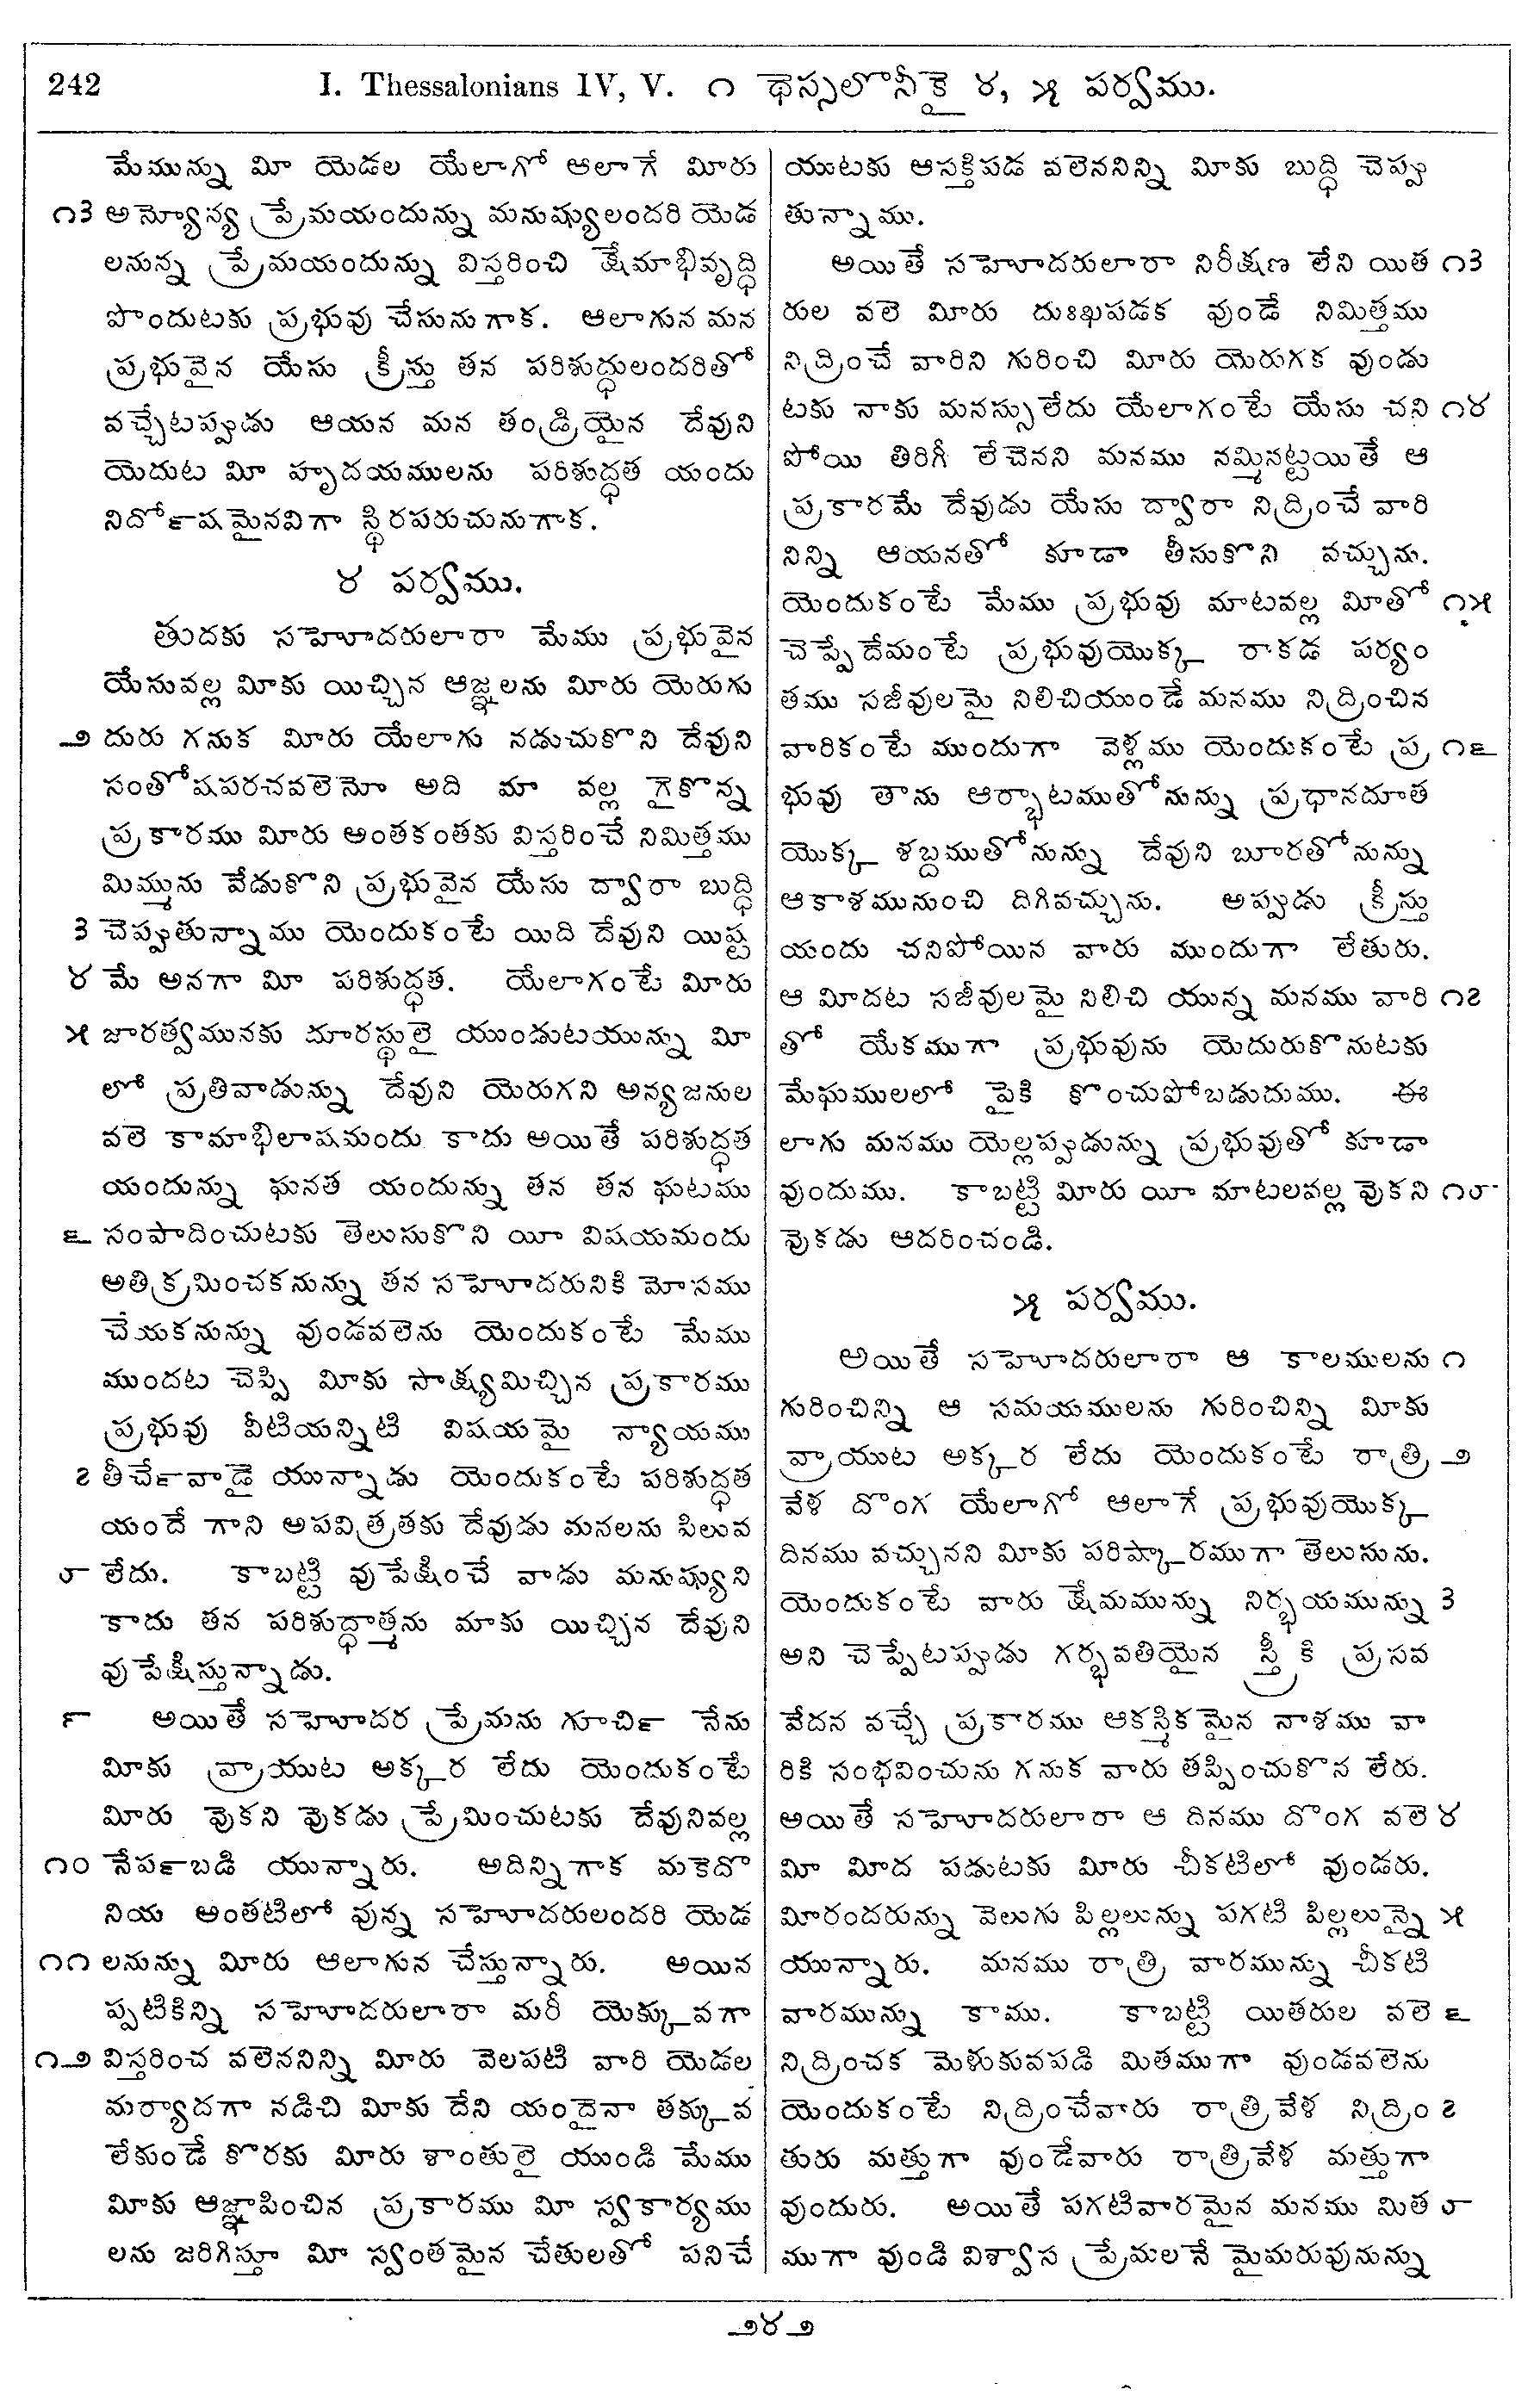 242 I. Thessalonians IV, V. ౧ థెస్సలొనీకై ౪, ౫ పర్వము.
మేమున్ను మీ యెడల యేలాగో ఆలాగే మీరు
౧౩ అన్యోన్య ప్రేమయందున్ను మనుష్యులందరి యెడ
లనున్న ప్రేమయందున్ను విస్తరించి క్షేమాభివృద్ధి
పొందుటకు ప్రభువు చేసునుగాక. ఆలాగున మన
ప్రభువైన యేసు క్రీస్తు తన పరిశుద్ధులందరితో
వచ్చేటప్పుడు ఆయన మన తండ్రియైన దేవుని
యెదుట మీ హృదయములను పరిశుద్ధత యందు
నిదోర్షమైనవిగా స్థిరపరుచునుగాక.
౪ పర్వము.
తుదకు సహోదరులారా మేము ప్రభువైన
యేసువల్ల మీకు యిచ్చిన ఆజ్ఞలను మీరు యెరుగు
౨ దురు గనుక మీరు యేలాగు నడుచుకొని దేవుని
సంతోషపరచవలెనో అది మా వల్ల గైకొన్న
ప్రకారము మీరు అంతకంతకు విస్తరించే నిమిత్తము
మిమ్మును వేడుకొని ప్రభువైన యేసు ద్వారా బుద్ధి
౩ చెప్పుతున్నాము యెందుకంటే యిది దేవుని యిష్ట
౪ మే అనగా మీ పరిశుద్ధత. యేలాగంటే మీరు
౫ జారత్వమునకు దూరస్థులై యుండుటయున్ను మీ
లో ప్రతివాడున్ను దేవుని యెరుగని అన్యజనుల
వలె కామాభిలాషమందు కాదు అయితే పరిశుద్ధత
యందున్ను ఘనత యందున్ను తన తన ఘటము
౬ సంపాదించుటకు తెలుసుకొని యీ విషయమందు
అతిక్రమించకనున్ను తన సహోదరునికి మోసము
చేయకనున్ను వుండవలెను యెందుకంటే మేము
ముందట చెప్పి మీకు సాక్ష్యమిచ్చిన ప్రకారము
ప్రభువు వీటియన్నిటి విషయమై న్యాయము
౭ తీచేర్వాడై యున్నాడు యెందుకంటే పరిశుద్ధత
యందే గాని అపవిత్రతకు దేవుడు మనలను పిలువ
౮ లేదు. కాబట్టి వుపేక్షించే వాడు మనుష్యుని
కాదు తన పరిశుద్ధాత్మను మాకు యిచ్చిన దేవుని
వుపేక్షిస్తున్నాడు.
౯ అయితే సహోదర ప్రేమను గూచిర్ నేను
మీకు వ్రాయుట అక్కర లేదు యెందుకంటే
మీరు వొకని వొకడు ప్రేమించుటకు దేవునివల్ల
౧౦ నేపర్బడి యున్నారు. అదిన్నిగాక మకెదొ
నియ అంతటిలో వున్న సహోదరులందరి యెడ
౧౧ లనున్ను మీరు ఆలాగున చేస్తున్నారు. అయిన
ప్పటికిన్ని సహోదరులారా మరీ యెక్కువగా
౧౨ విస్తరించ వలెననిన్ని మీరు వెలపటి వారి యెడల
మర్యాదగా నడిచి మీకు దేని యందైనా తక్కువ
లేకుండే కొరకు మీరు శాంతులై యుండి మేము
మీకు ఆజ్ఞాపించిన ప్రకారము మీ స్వకార్యము
లను జరిగిస్తూ మీ స్వంతమైన చేతులతో పనిచే
యుటకు ఆసక్తిపడ వలెననిన్ని మీకు బుద్ధి చెప్పు
తున్నాము.
అయితే సహోదరులారా నిరీక్షణ లేని యిత ౧౩
రుల వలె మీరు దుఃఖపడక వుండే నిమిత్తము
నిద్రించే వారిని గురించి మీరు యెరుగక వుండు
టకు నాకు మనస్సు లేదు యేలాగంటే యేసు చని ౧౪
పోయి తిరిగీ లేచెనని మనము నమ్మినట్టయితే ఆ
ప్రకారమే దేవుడు యేసు ద్వారా నిద్రించే వారి
నిన్ని ఆయనతో కూడా తీసుకొని వచ్చును.
యెందుకంటే మేము ప్రభువు మాటవల్ల మీతో ౧౫
చెప్పే దేమంటే ప్రభువుయొక్క రాకడ పర్యం
తము సజీవులమై నిలిచియుండే మనము నిద్రించిన
వారికంటే ముందుగా వెళ్లము యెందుకంటే ప్ర ౧౬
భువు తాను ఆర్భాటముతోనున్ను ప్రధానదూత
యొక్క శబ్దముతోనున్ను దేవుని బూరతోనున్ను
ఆకాశమునుంచి దిగివచ్చును. అప్పుడు క్రీస్తు
యందు చనిపోయిన వారు ముందుగా లేతురు.
ఆ మీదట సజీవులమై నిలిచి యున్న మనము వారి ౧౭
తో యేకముగా ప్రభువును యెదురుకొనుటకు
మేఘములలో పైకి కొంచుపోబడుదుము. ఈ
లాగు మనము యెల్లప్పుడున్ను ప్రభువుతో కూడా
వుందుము. కాబట్టి మీరు యీ మాటలవల్ల వొకని ౧౮
వొకడు ఆదరించండి.
౫ పర్వము.
అయితే సహోదరులారా ఆ కాలములను ౧
గురించిన్ని ఆ సమయములను గురించిన్ని మీకు
వ్రాయుట అక్కర లేదు యెందుకంటే రాత్రి ౨
వేళ దొంగ యేలాగో ఆలాగే ప్రభువుయొక్క
దినము వచ్చునని మీకు పరిష్కారముగా తెలుసును.
యెందుకంటే వారు క్షేమమున్ను నిర్భయమున్ను ౩
అని చెప్పేటప్పుడు గర్భవతియైన స్త్రీకి ప్రసవ
వేదన వచ్చే ప్రకారము ఆకస్మికమైన నాశము వా
రికి సంభవించును గనుక వారు తప్పించుకొన లేరు.
అయితే సహోదరులారా ఆ దినము దొంగ వలె ౪
మీ మీద పడుటకు మీరు చీకటిలో వుండరు.
మీరందరున్ను వెలుగు పిల్లలున్ను పగటి పిల్లలున్నై ౫
యున్నారు. మనము రాత్రి వారమున్ను చీకటి
వారమున్ను కాము. కాబట్టి యితరుల వలె ౬
నిద్రించక మెళుకువపడి మితముగా వుండవలెను
యెందుకంటే నిద్రించేవారు రాత్రివేళ నిద్రిం ౭
తురు మత్తుగా వుండేవారు రాత్రివేళ మత్తుగా
వుందురు. అయితే పగటివారమైన మనము మిత ౮
ముగా వుండి విశ్వాస ప్రేమలనే మైమరువునున్ను
౨౪౨